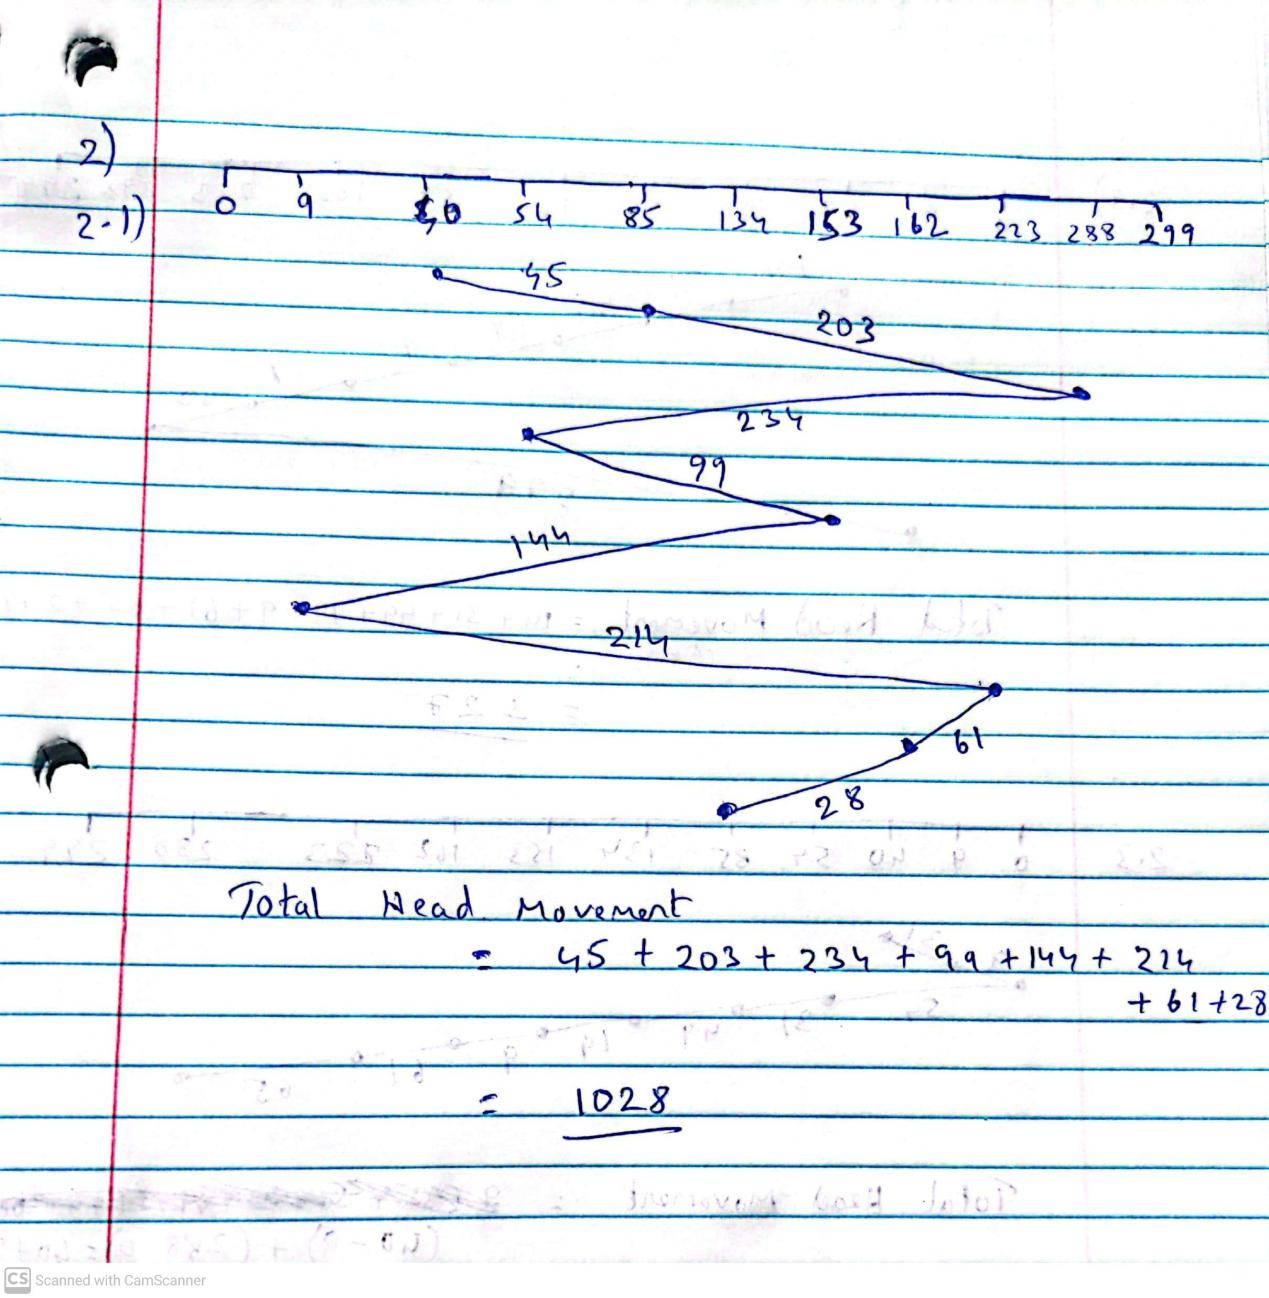 2)
2.1) 0 9 40 54 85 134 153 162 223 288 299
45
203
234
99
144
214
61
28
Total Head Movement
= 45 + 203 + 234 + 99 + 144 + 214
+ 61 + 28
= 1028
CS Scanned with CamScanner